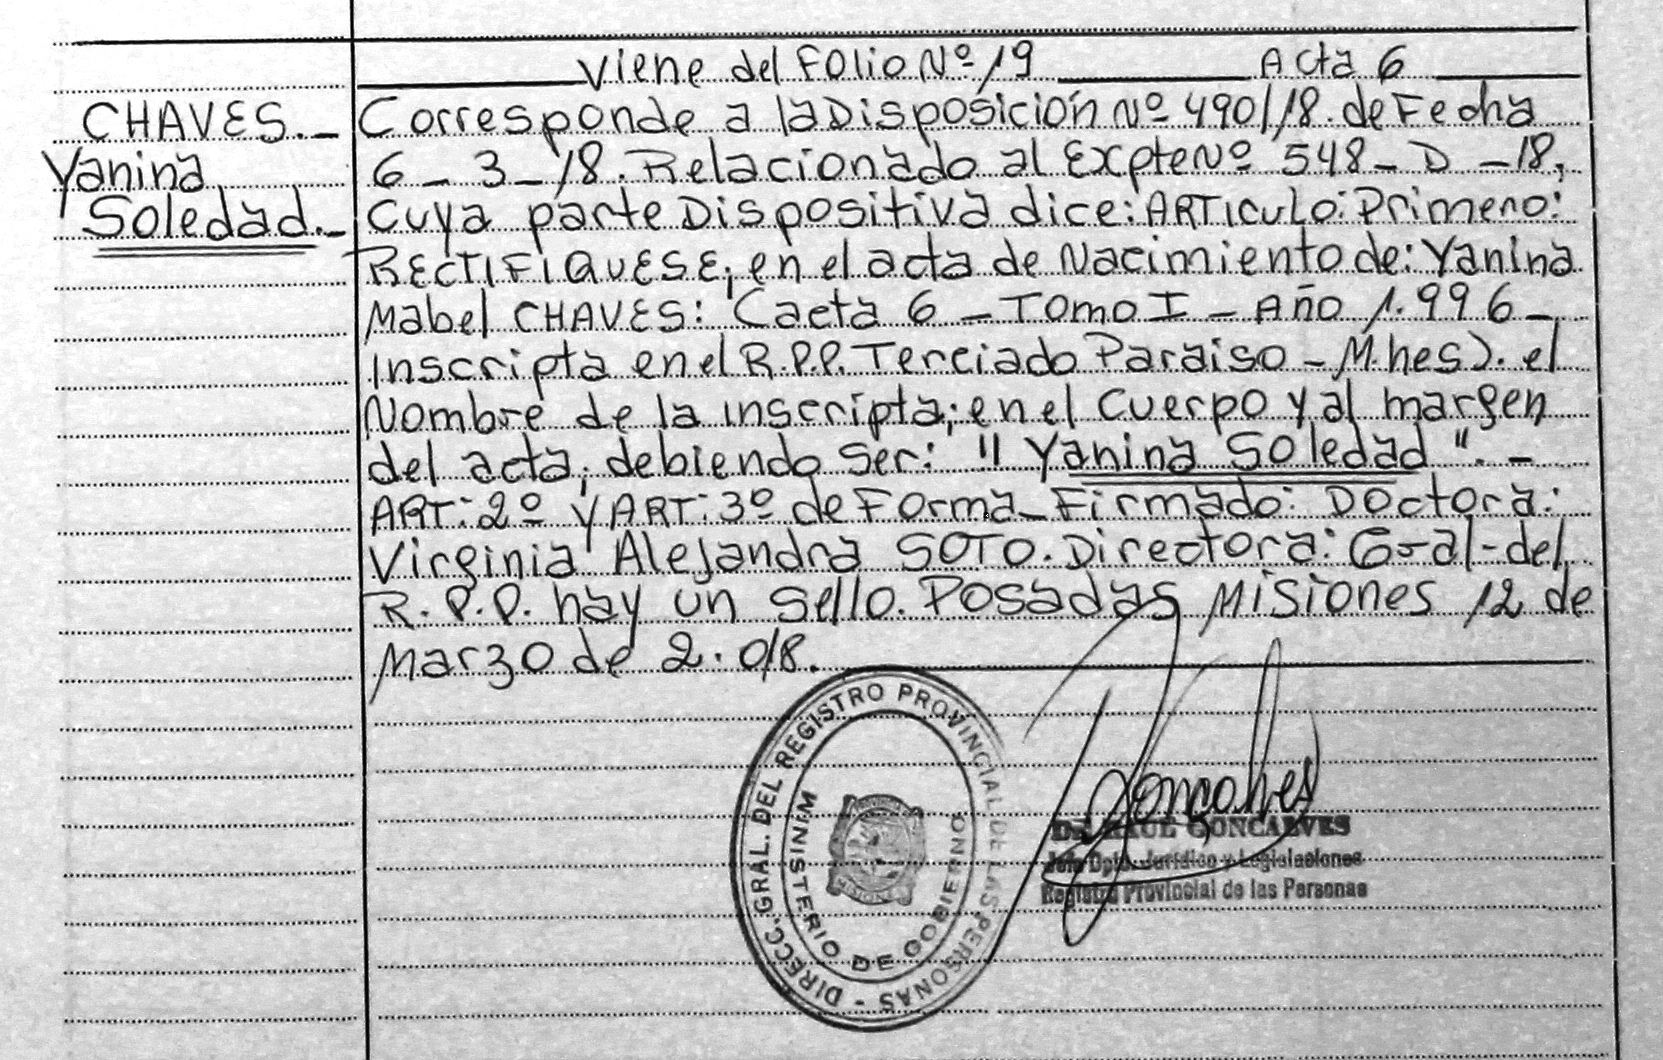 Viene del Folio Nº 19 Acta 6
CHAVES.-
Yanina
Soledad.-
Corresponde a la Disposición Nº 490/18. de Fecha
6 - 3 - 18. Relacionado al Expte Nº 548 - D - 18,
Cuya parte Dispositiva dice: ARTICULO: Primero:
RECTIFIQUESE; en el acta de Nacimiento de: Yanina
Mabel CHAVES: Caeta 6 - TOMO I - Año 1.996 -
Inscripta en el R.P.P. Terciado Paraiso - M.nes). el
Nombre de la inscripta; en el Cuerpo y al margen
del acta; debiendo Ser: " Yanina Soledad ". -
ART: 2º Y ART: 3º de Forma - Firmado: Doctora:
Virginia Alejandra SOTO. Directora: Gral - del
R.P.P. hay un Sello. Posadas Misiones 12 de
Marzo de 2.018.
DIRECC. GRAL. DEL REGISTRO PROVINCIAL DE LAS PERSONAS -
MINISTERIO DE GOBIERNO
Goncalves
Dr. RAUL GONCALVES
Jefe Dpto. Jurídico y Legislaciones
Registro Provincial de las Personas